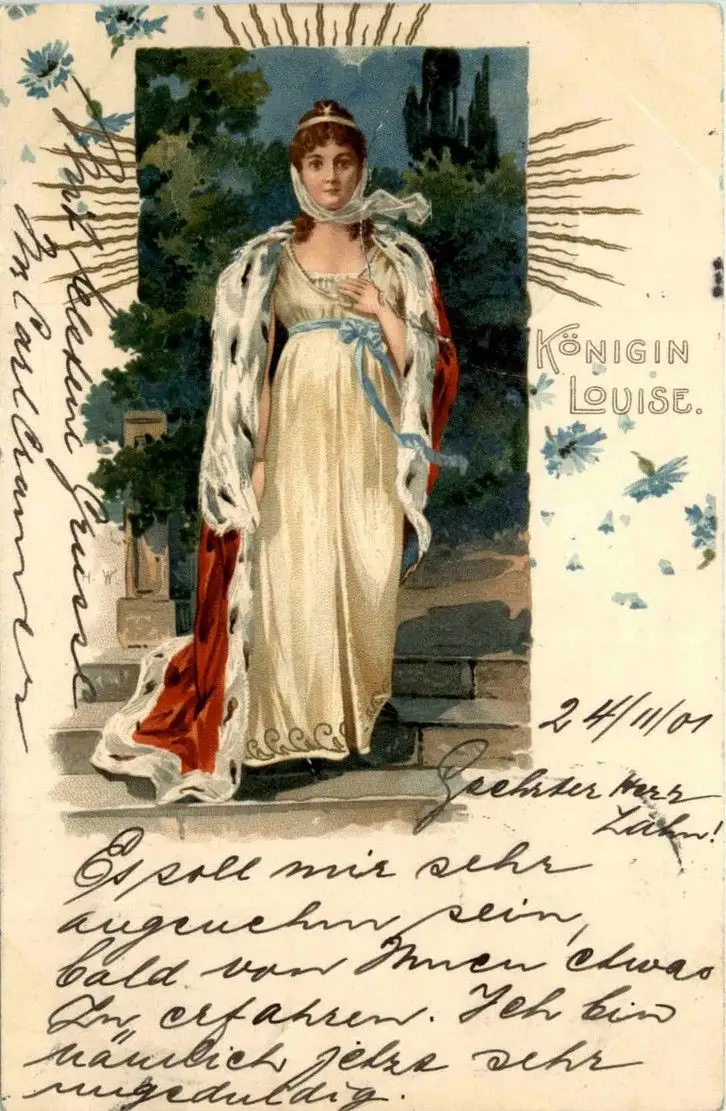 KÖNIGIN
LOUISE.
24/11/01
Geehrter Herr
Zahn!
Es soll mir sehr
angenehm sein,
bald von Ihnen etwas
zu erfahren. Ich bin
nämlich jetzt sehr
ungeduldig.
Mit besten Grüssen
Carl Cramer
H. W.